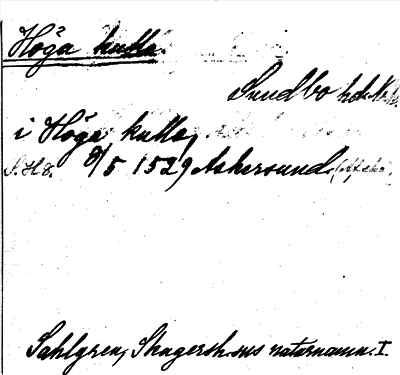 Höga kulla
Sundbo hd.
i Höga kulla,
S. H 8. 8/5 1529 Askersund
Sahlgren, Skagersh:sus naturnamn. I.